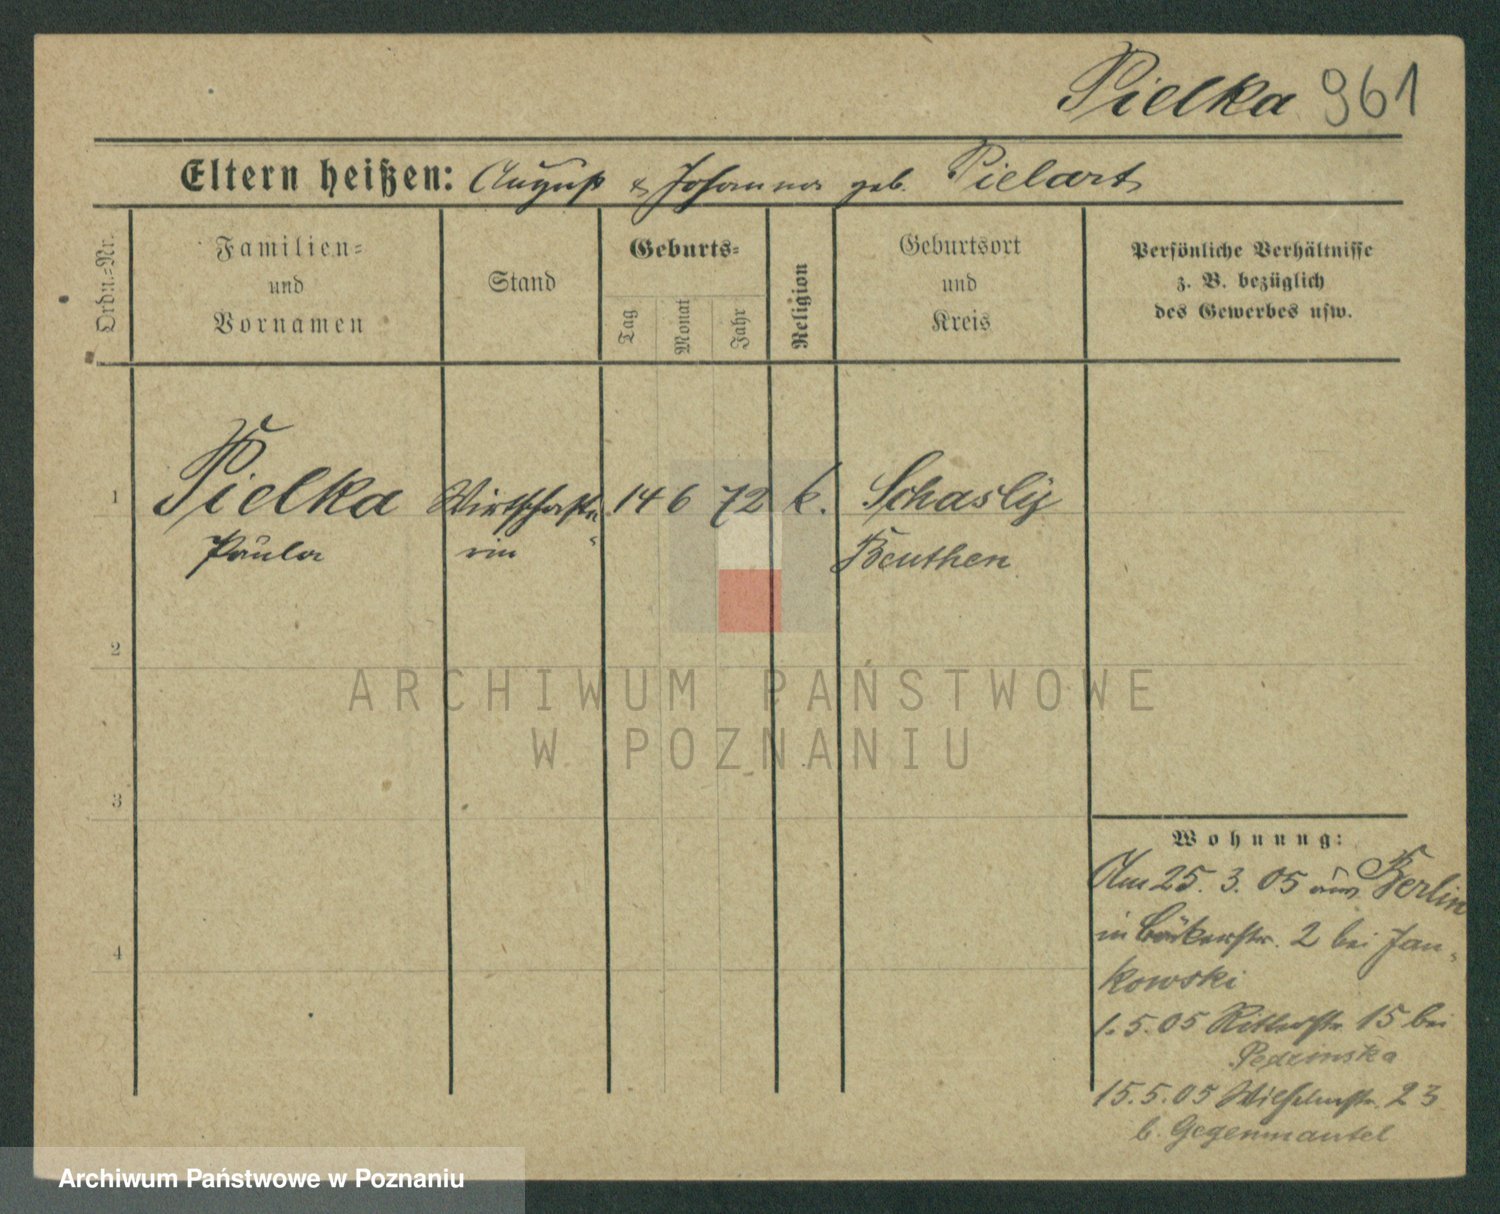 Pielka 961
Eltern heißen: August & Johanna geb. Pielart
Ordn.-Nr.
Familien-
und
Vornamen
Stand
Geburts-
Tag
Monat
Jahr
Religion
Geburtsort
und
Kreis
Persönliche Verhältnisse
z. B. bezüglich
des Gewerbes usw.
1 Pielka Wirtschafte- 14 6 72 k. Schasly
Paula rin Beuthen
2
3
4
ARCHIWUM PAŃSTWOWE
W POZNANIU
Wohnung:
Am 25. 3. 05 aus Berlin
in Bäkerstr. 2 bei Jan-
kowski
1.5.05 Ritterstr. 15 bei
15.5.05 Wilhelmstr. 23
b. Gegenmantel
Archiwum Państwowe w Poznaniu